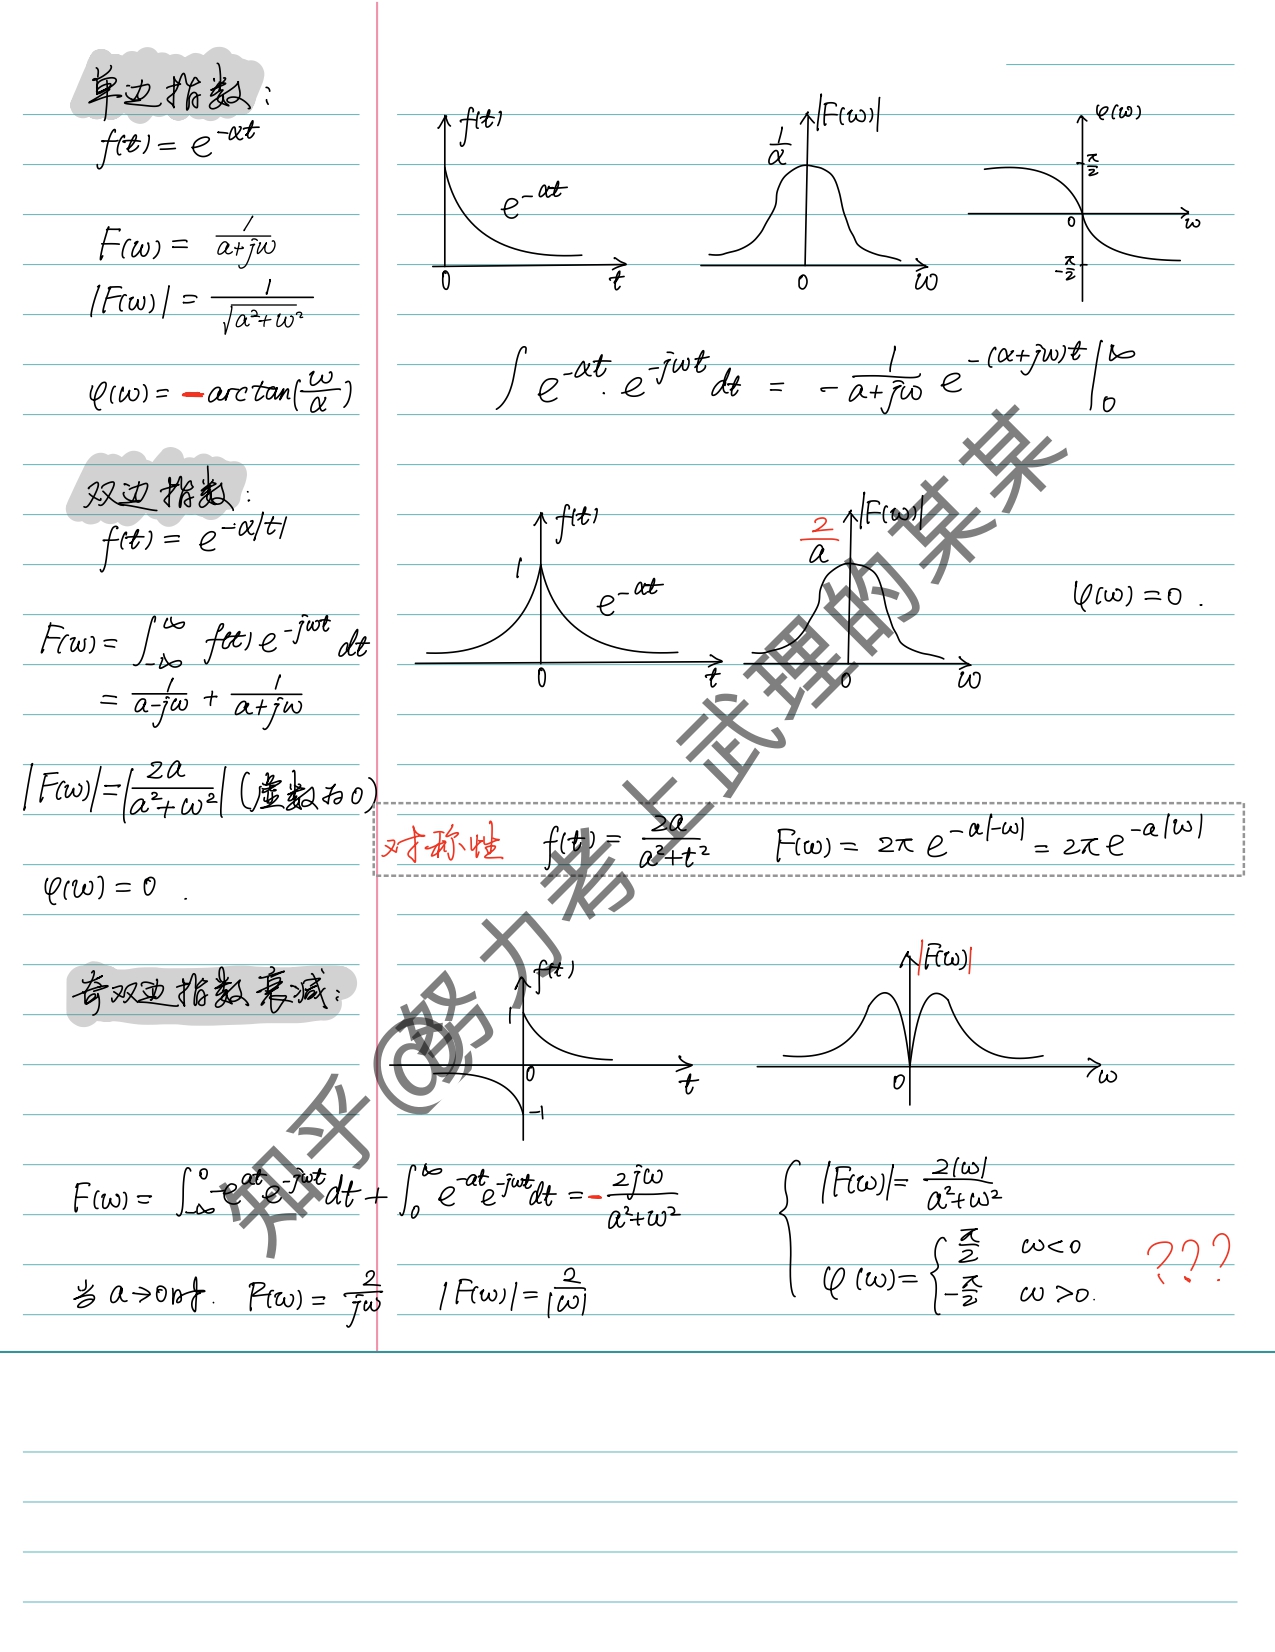 单边指数:
f(t) = e^{-αt}
F(ω) = 1/(a+jω)
|F(ω)| = 1/√(a²+ω²)
φ(ω) = -arctan(ω/α)
f(t)
e^{-αt}
0
t
|F(ω)|
1/α
0
ω
φ(ω)
π/2
0
ω
-π/2
∫ e^{-αt} · e^{-jωt} dt = - 1/(a+jω) e^{-(α+jω)t} |_0^∞
双边指数:
f(t) = e^{-α|t|}
F(ω) = ∫_{-∞}^{∞} f(t) e^{-jωt} dt
= 1/(a-jω) + 1/(a+jω)
|F(ω)| = |2a/(a²+ω²)| (虚数为0)
φ(ω) = 0 .
f(t)
1
e^{-αt}
0
t
|F(ω)|
2/a
0
ω
φ(ω) = 0 .
对称性 f(t) = 2a/(a²+t²) F(ω) = 2π e^{-a|-ω|} = 2π e^{-a|ω|}
奇双边指数衰减:
f(t)
1
0
t
-1
|F(ω)|
0
ω
F(ω) = ∫_{-∞}^{0} -e^{at} e^{-jωt} dt + ∫_0^∞ e^{-at} e^{-jωt} dt = - 2jω/(a²+ω²)
当 a→0时. F(ω) = 2/jω |F(ω)| = 2/|ω|
{ |F(ω)| = 2|ω|/(a²+ω²)
φ(ω) = { π/2 ω<0
-π/2 ω>0.
???
知乎@努力考上武理的某某